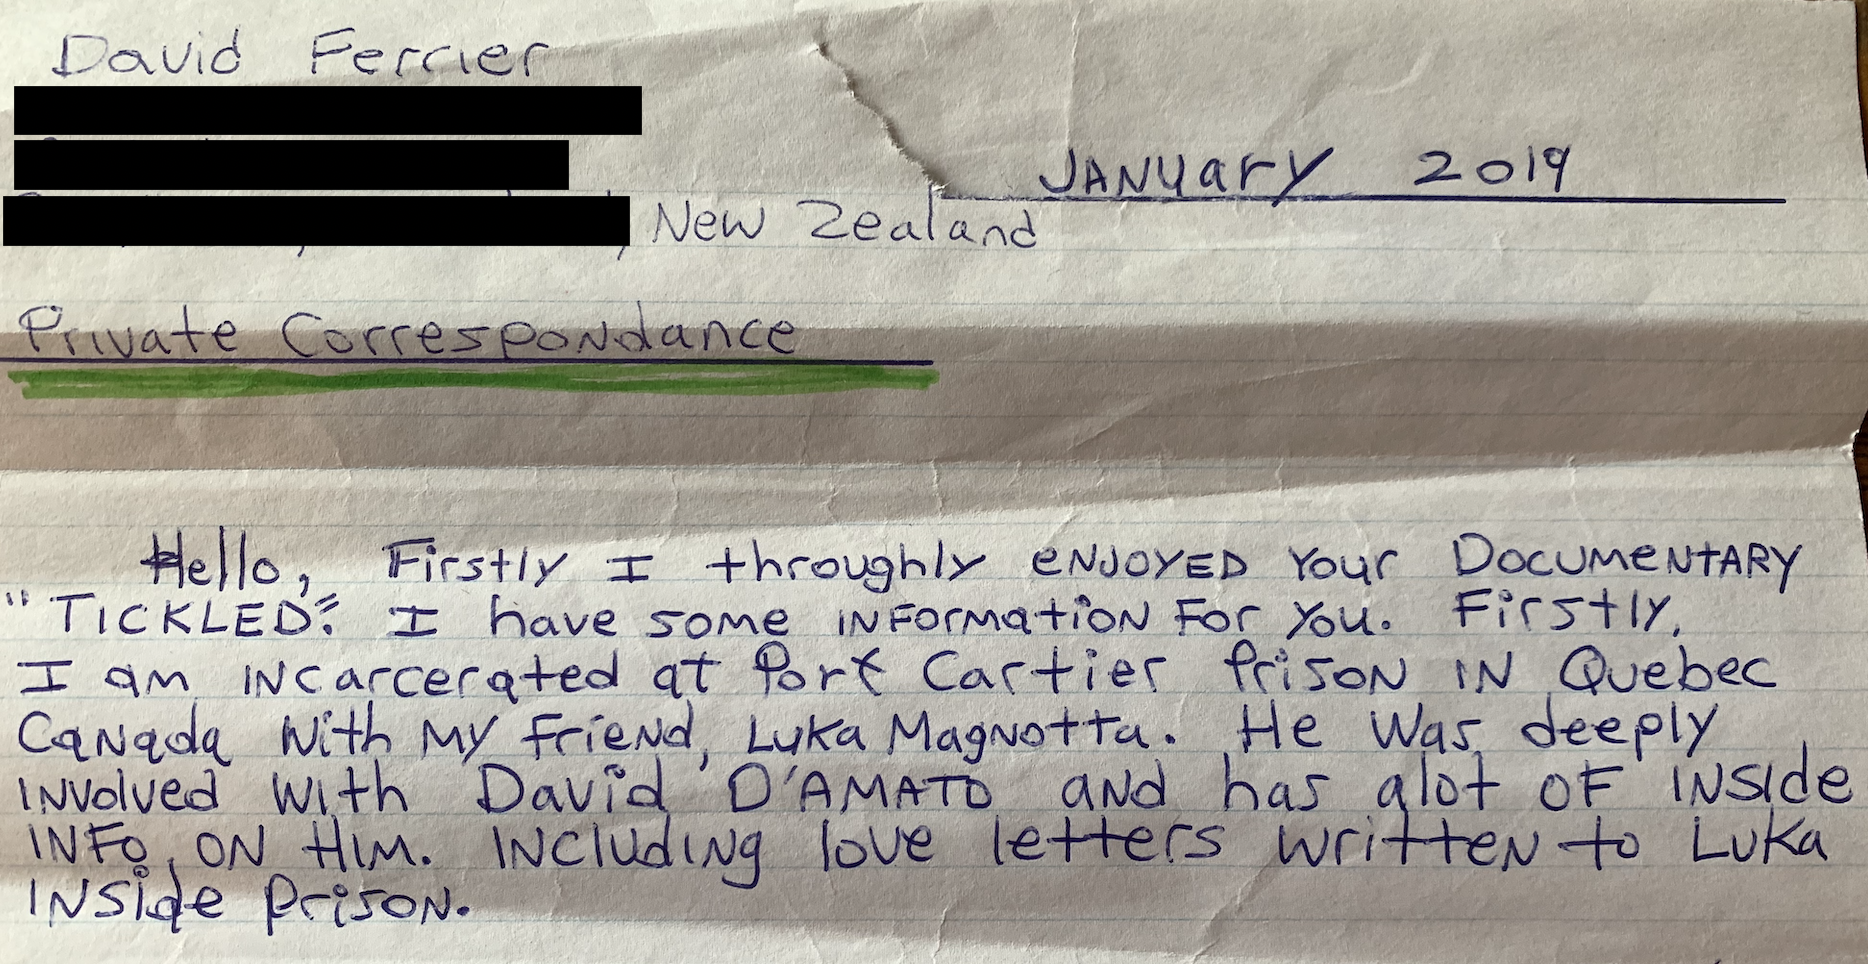 David Ferrier
January 2019
, New Zealand
Private Correspondance
Hello, Firstly I throughly enjoyed your Documentary
"TICKLED". I have some information for you. Firstly,
I am incarcerated at Port Cartier Prison in Quebec
Canada with my friend, Luka Magnotta. He was deeply
involved with David D'AMATO and has alot of inside
info on him. Including love letters written to Luka
inside prison.